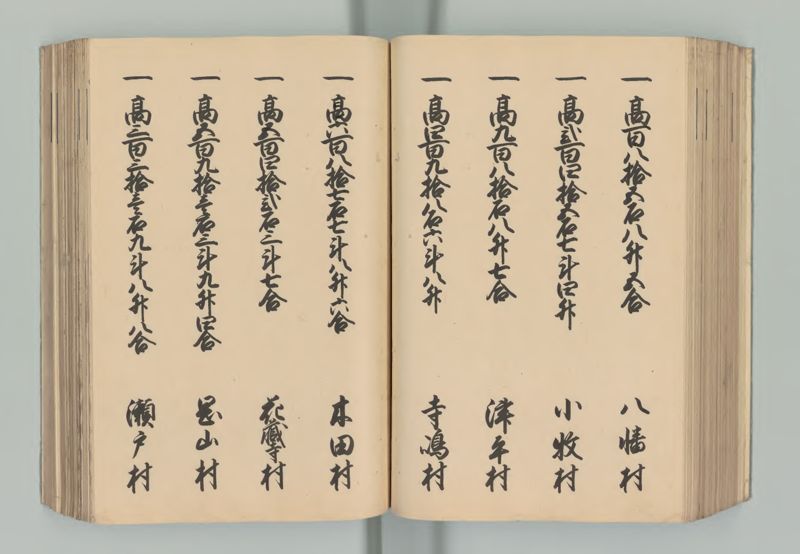 一 高百八拾五石八升五合 八幡村
一 高弐百四拾五石七斗四升 小牧村
一 高九百八拾石八升七合 津平村
一 高四百九拾八石六斗八升 寺嶋村
一 高六百八拾七石七斗八升六合 木田村
一 高五百四拾弐石二斗七合 花蔵寺村
一 高五百九拾三石三斗九升四合 岡山村
一 高三百三拾三石九斗八升八合 瀬戸村